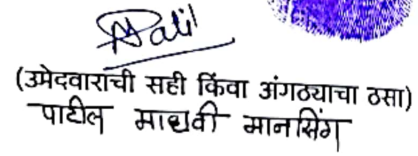 Patil
(उमेदवाराची सही किंवा अंगठ्याचा ठसा)
पाटील माधवी मानसिंग